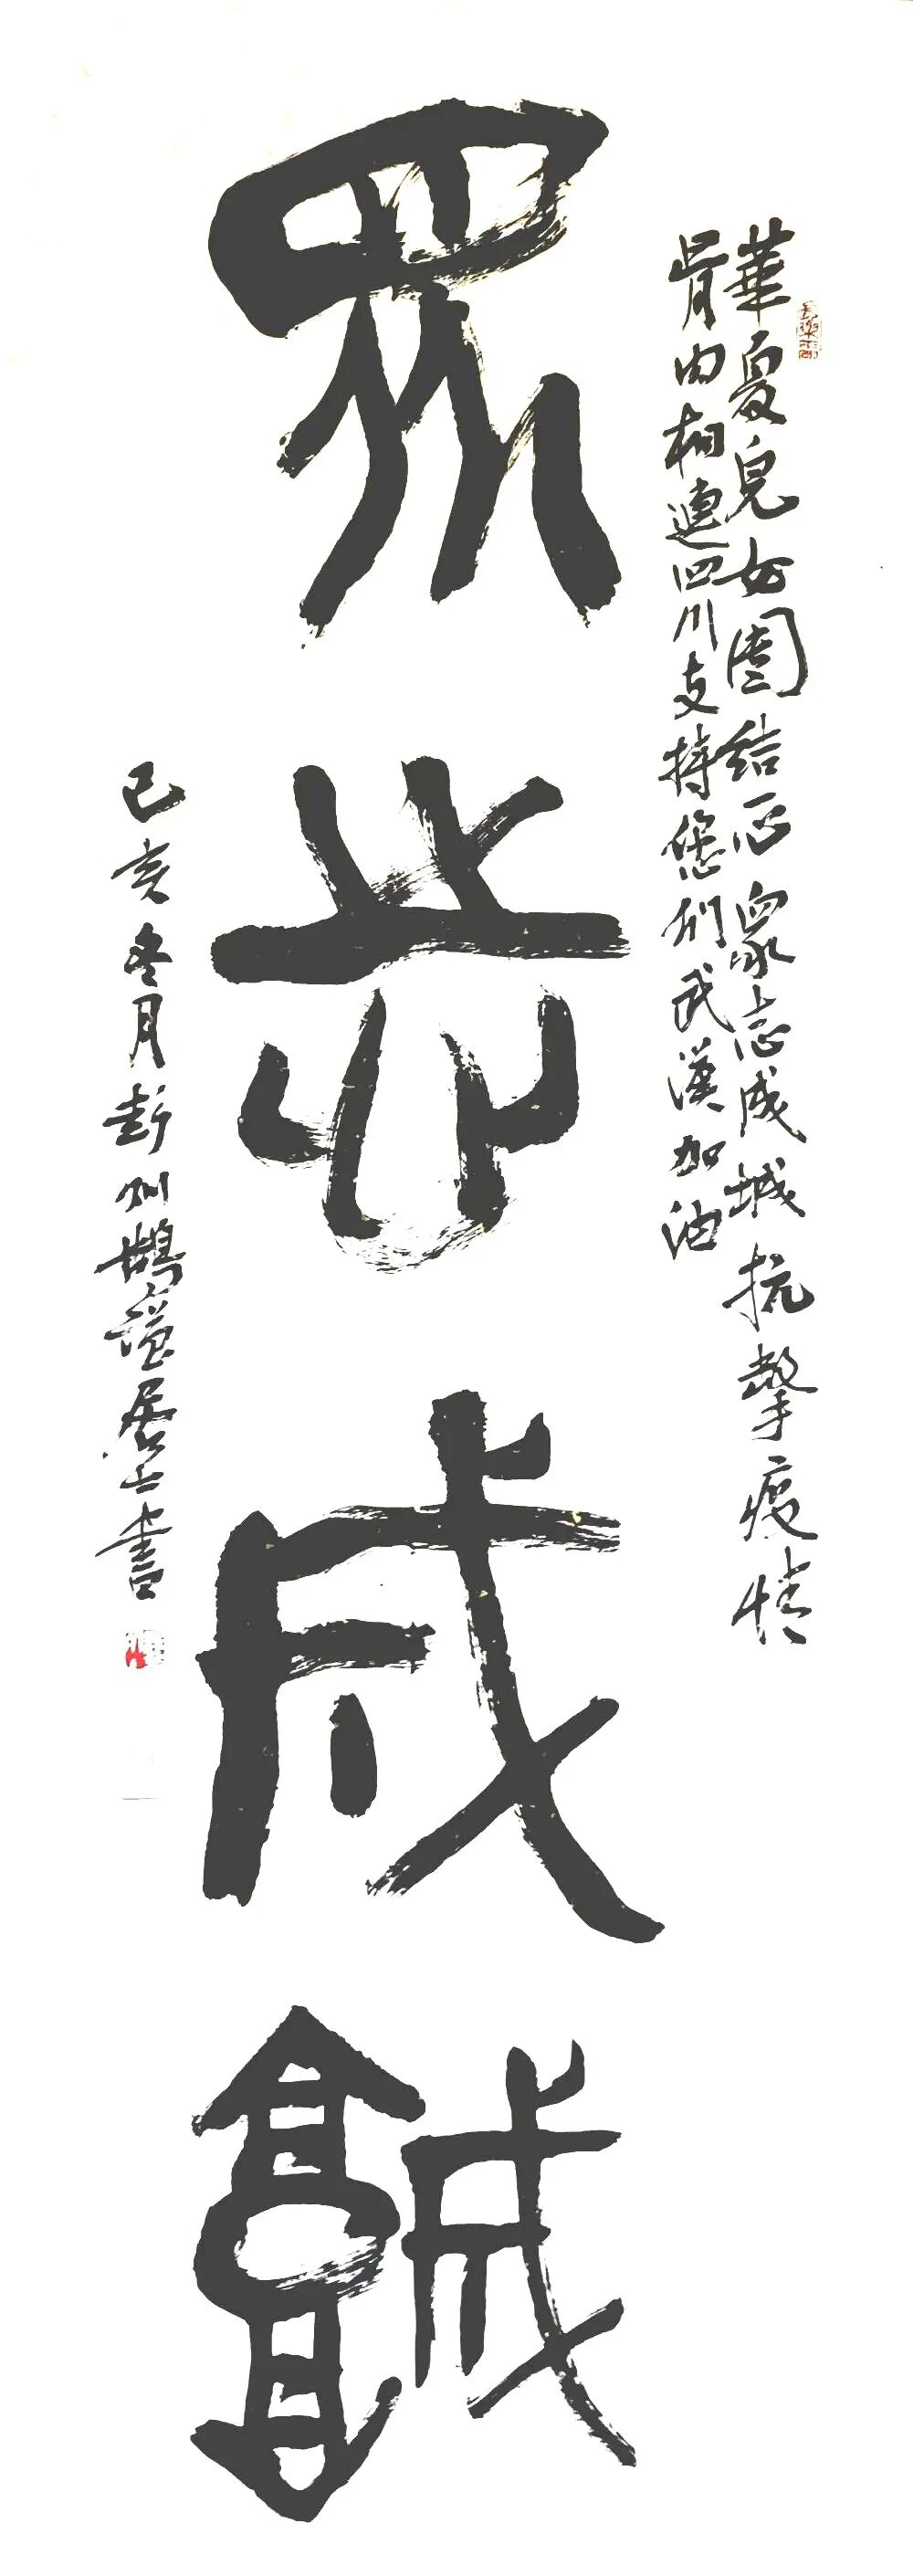 華夏兒女團結一心衆志成城抗擊疫情
骨肉相連四川支持您们武漢加油
眾志成城
己亥冬月彭州居士書